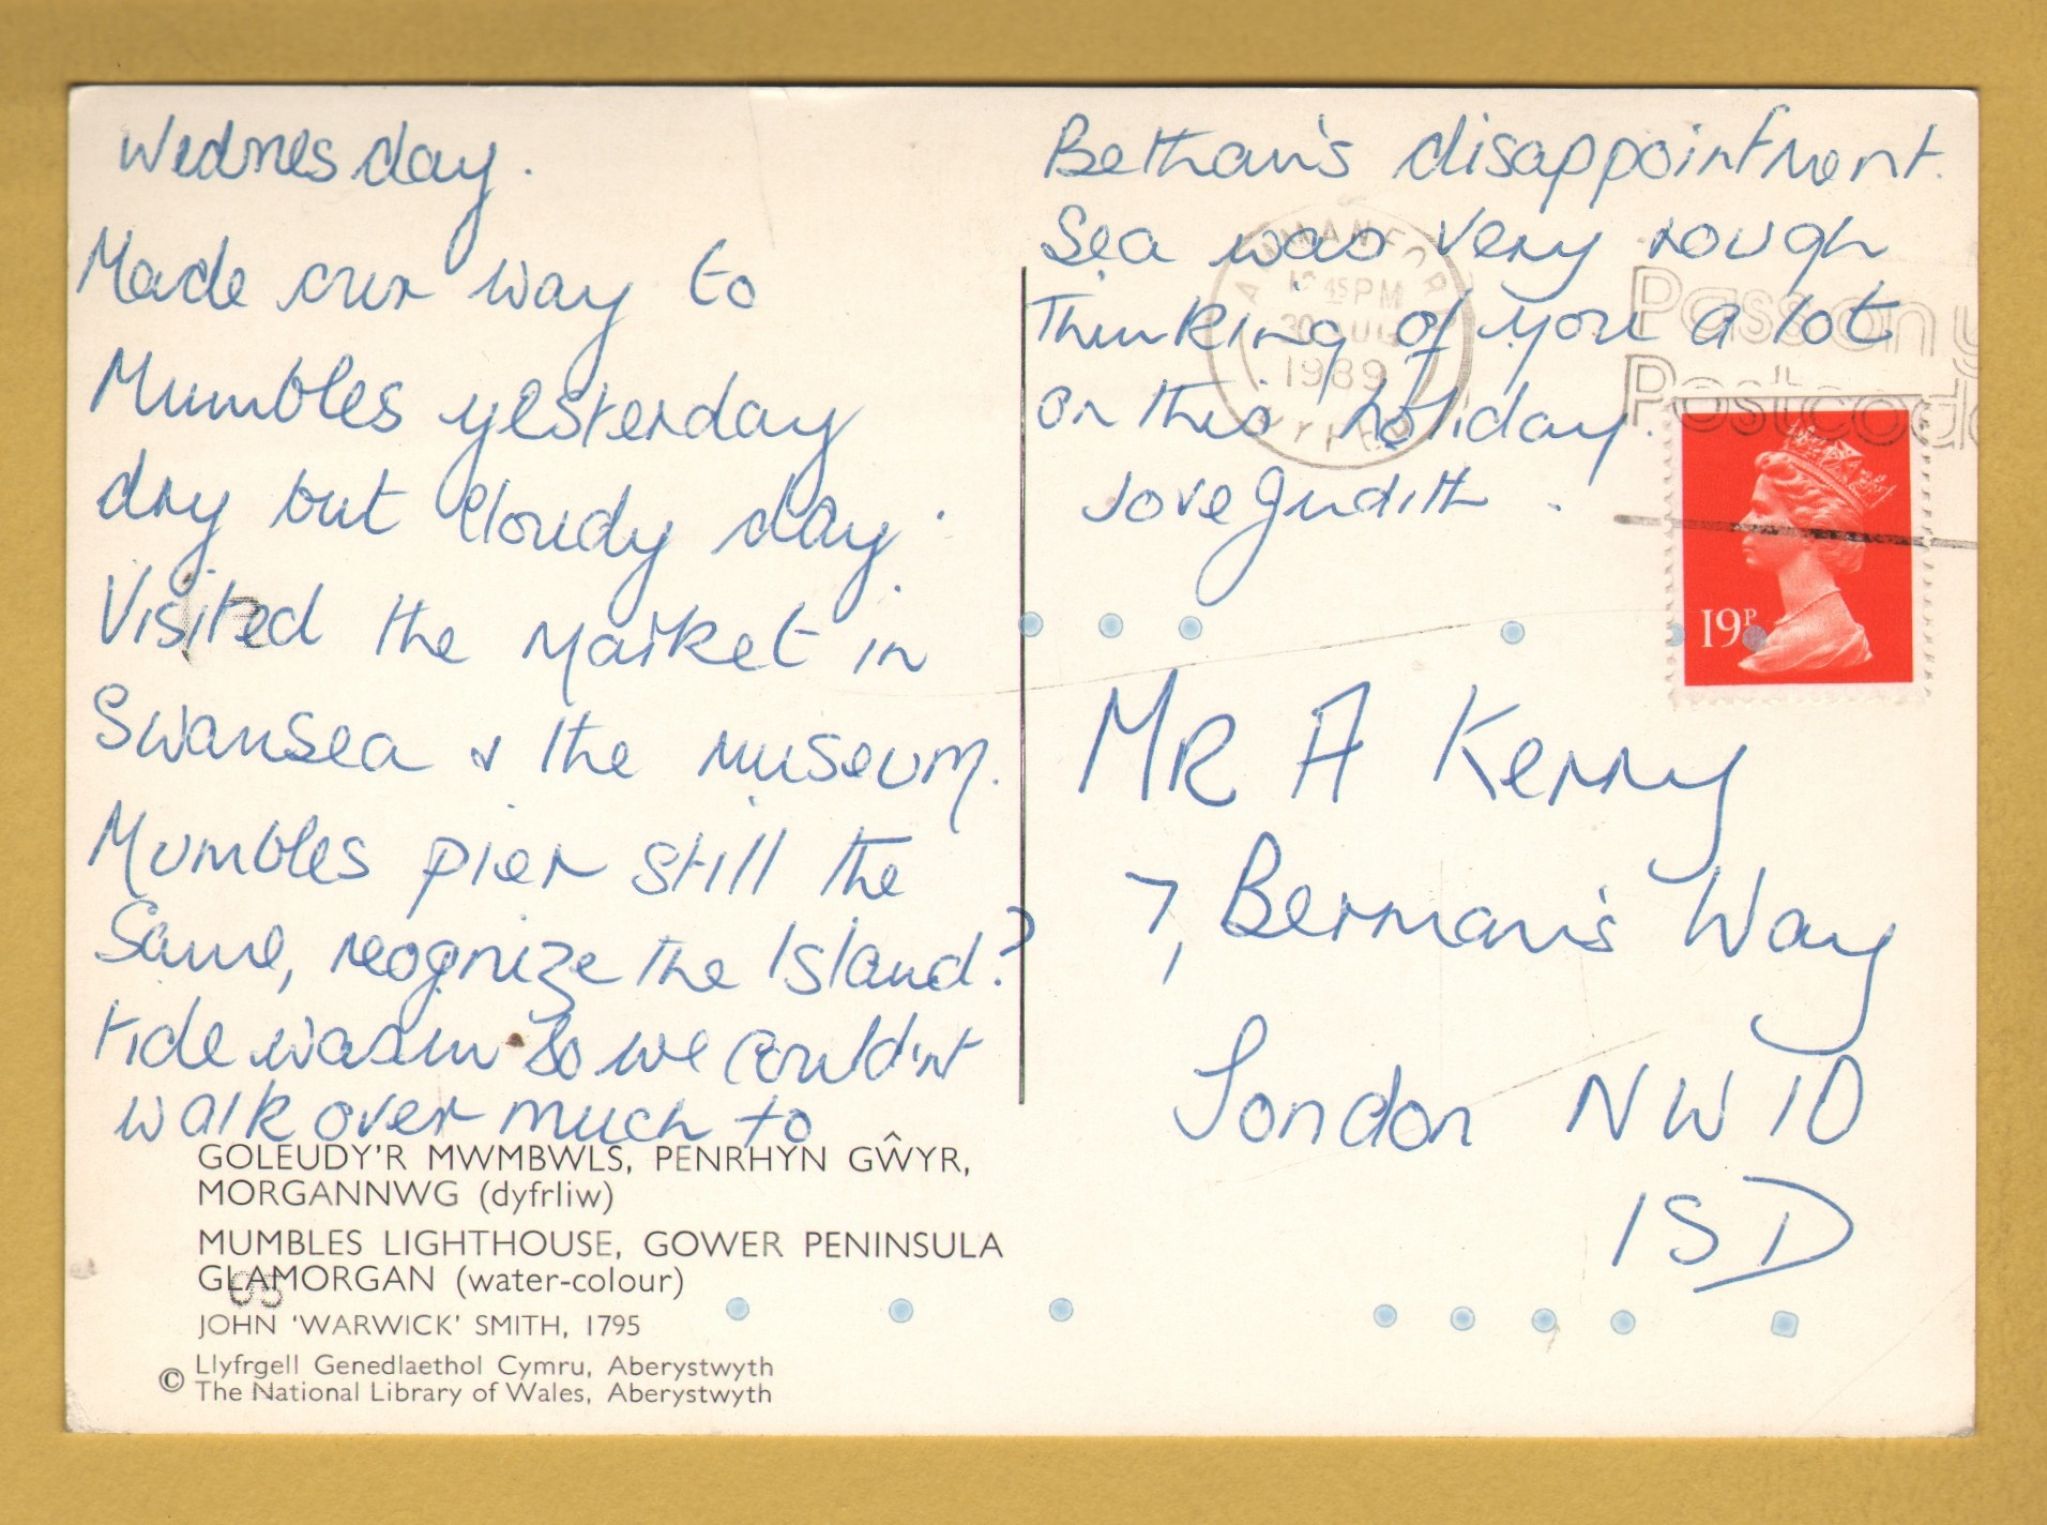 Wednesday.
Made our way to
Mumbles yesterday
dry but cloudy day.
Visited the market in
Swansea & the museum.
Mumbles pier still the
same, reognize the Island?
tide was in so we couldn't
walk over much to
Bethan's disappointment.
Sea was very rough
Thinking of you a lot
on this holiday.
love Judith.
AMMANFORD
45PM
30 AUG
1989
DYFED
Pass on y
Postcode
19P
MR A Kenny
7, Berman's Way
London NW10
1SD
GOLEUDY'R MWMBWLS, PENRHYN GŴYR,
MORGANNWG (dyfrliw)
MUMBLES LIGHTHOUSE, GOWER PENINSULA
GLAMORGAN (water-colour)
JOHN 'WARWICK' SMITH, 1795
© Llyfrgell Genedlaethol Cymru, Aberystwyth
The National Library of Wales, Aberystwyth